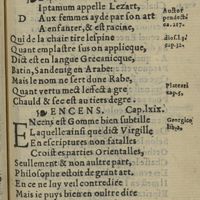 Iptamum appelle Lezart,
D Aux femmes ayde par son art
A enfanter, & est racine,
Qui de la chair tire l'espine
Quant emplastre sus on applicque,
Dict est en langue Grecanicque,
Batin, Sandeung en Arabe:
Mais le nom ne sert dune Rabe,
Quant vertu mect l'effect a gre
Chauld & sec est au tiers degre.
ENCENS. Cap. lxix.
ENcens est Gomme bien subtille
Laquelle ainsi que dict Virgille
En ses scriptures non fatalles
Croist es parties Orientalles,
Seulement & non aultre part,
Philosophe estoit de grant art.
En ce ne luy veil contredire
Mais ie puys bien en oultre dire
Autor
pendecti
ca. 217.
diosc. l. 3
cap. 32.
Platearij
cap. 5.
Georgicę
lib. 2.